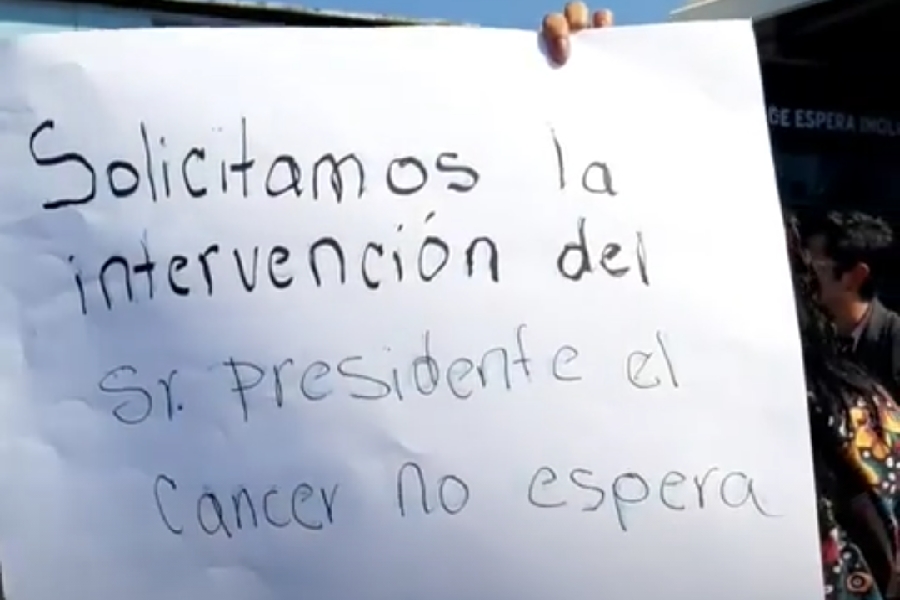 Solicitamos la
intervención del
Sr. Presidente el
Cancer no espera
DE ESPERA